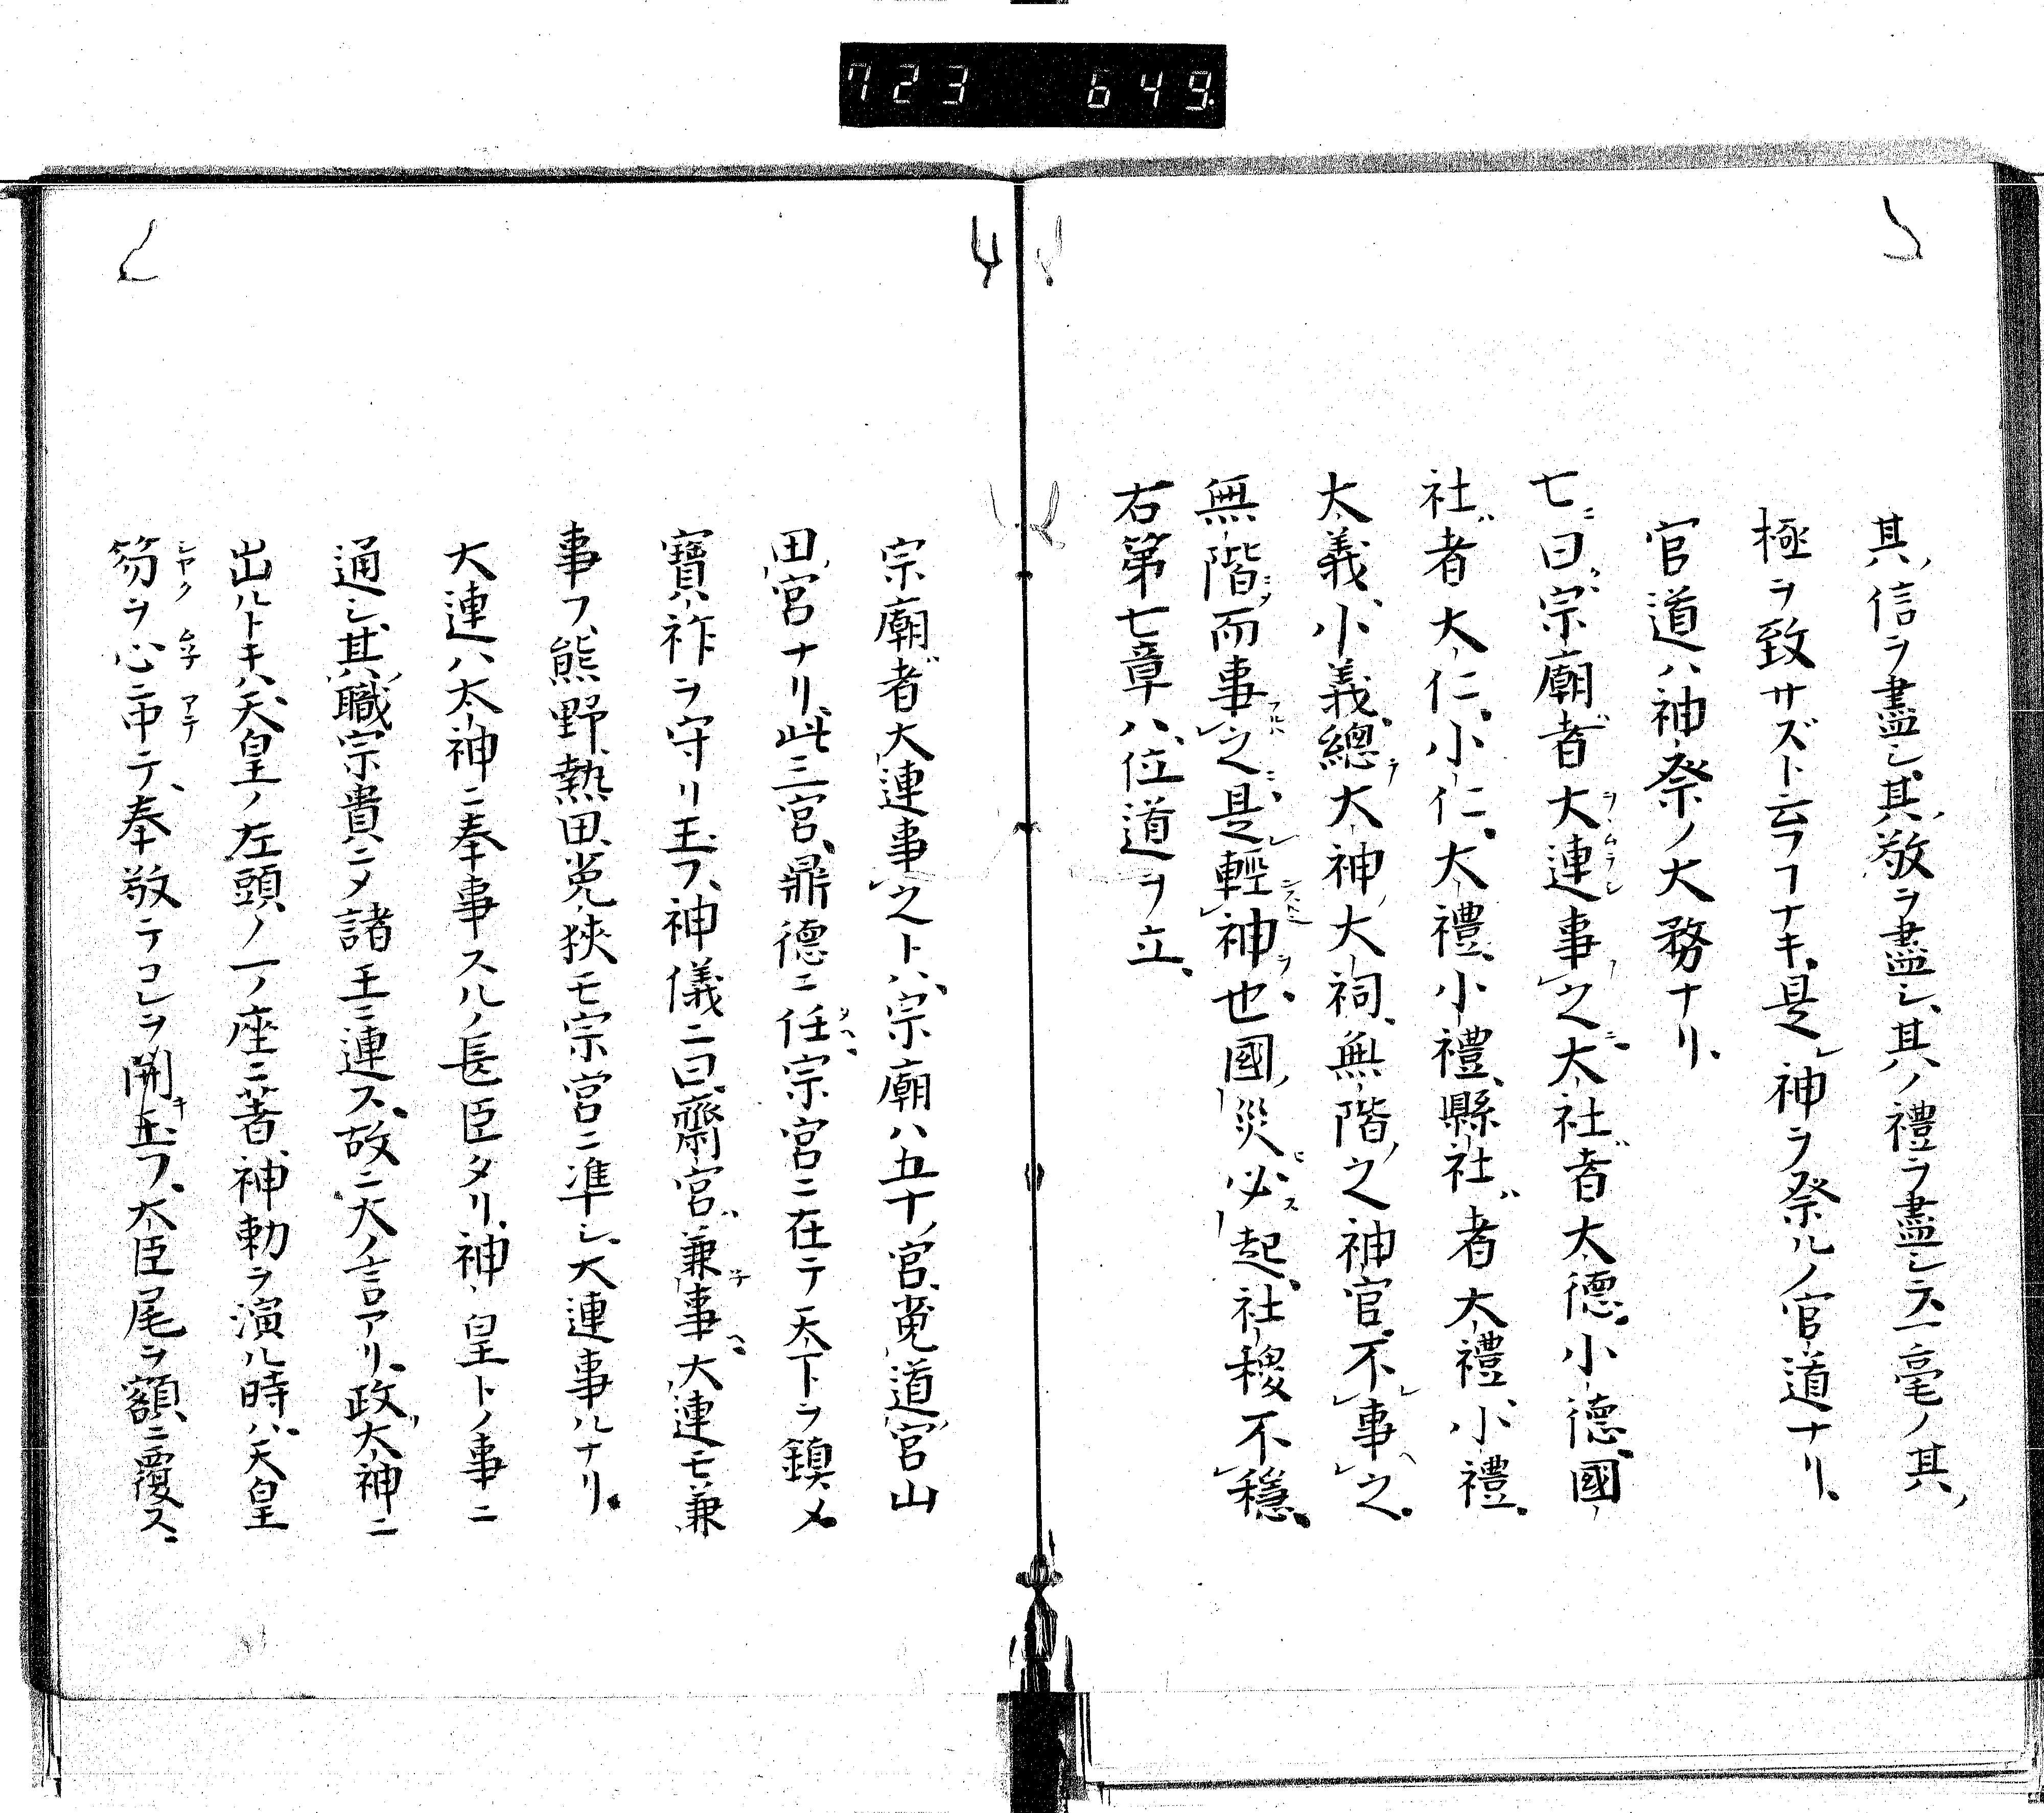 723 649.
其ノ信ヲ盡シ其ノ敬ヲ盡シ、其ノ禮ヲ盡シテ、一毫ノ其ノ
極ヲ致サズト云フヿナキ、是レ神ヲ祭ルノ官道ナリ、
官道ハ神祭ノ大務ナリ、
七ニ曰、宗廟者大連事之太社者大德、小德、國
社者大仁、小仁、大禮、小禮、縣社者大禮、小禮、
大義、小義總大神大祠、無階之神官、不事之、
無階而事之是輕神也國災必起、社稷不穩、
右第七章ハ、位道ヲ立、
宗廟者大連事之トハ、宗廟ハ五十宮、菟道宮山
田宮ナリ、此三宮、鼎德ニ任宗宮ニ在テ天下ヲ鎮メ、
寶祚ヲ守リ玉フ、神儀ニ曰、齋宮兼事、大連モ兼
事フ、熊野、熱田、菟狹モ宗宮ニ準シ、大連事ルナリ、
大連ハ太神ニ奉事スルノ長臣タリ、神皇トノ事ニ
通シ、其職宗貴ニメ諸王ニ連ス、故ニ大ノ言アリ、政大神ニ
出ルトキハ、天皇ノ左頭ノ一ノ座ニ著、神勅ヲ演ル時ハ、天皇
笏ヲ心ニ中テ、奉敬テコレヲ開玉フ、大臣尾ヲ額ニ覆ス、